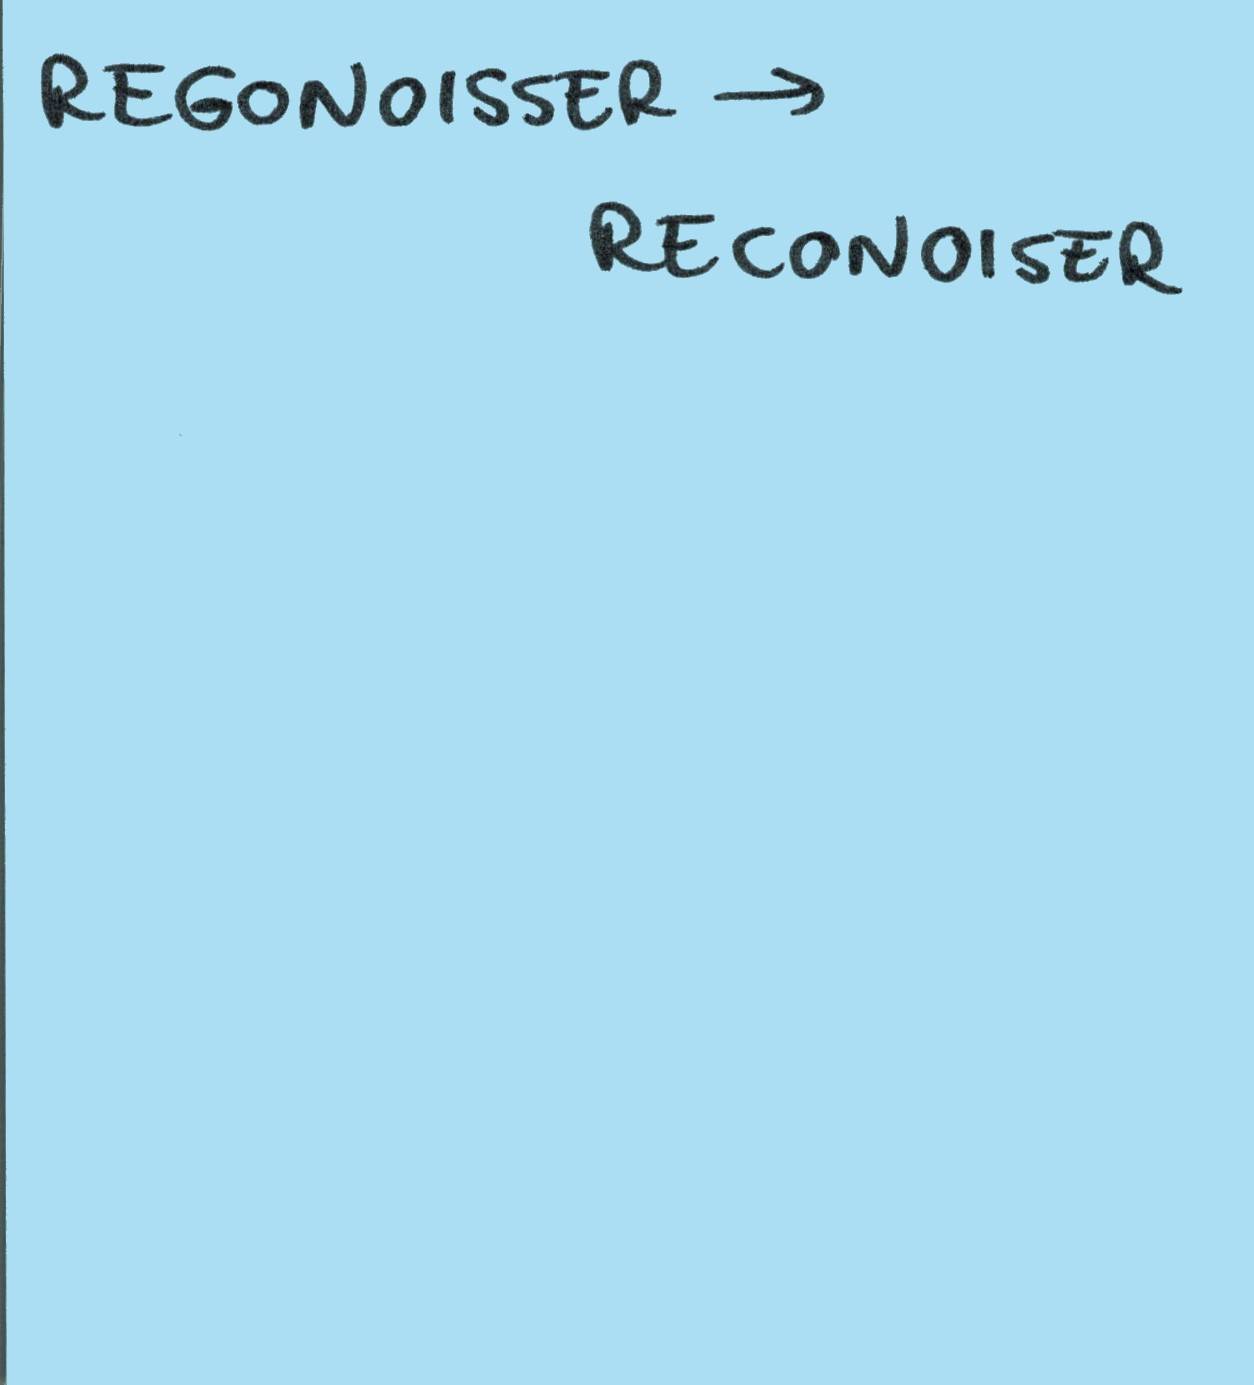 REGONOISSER →
RECONOISER